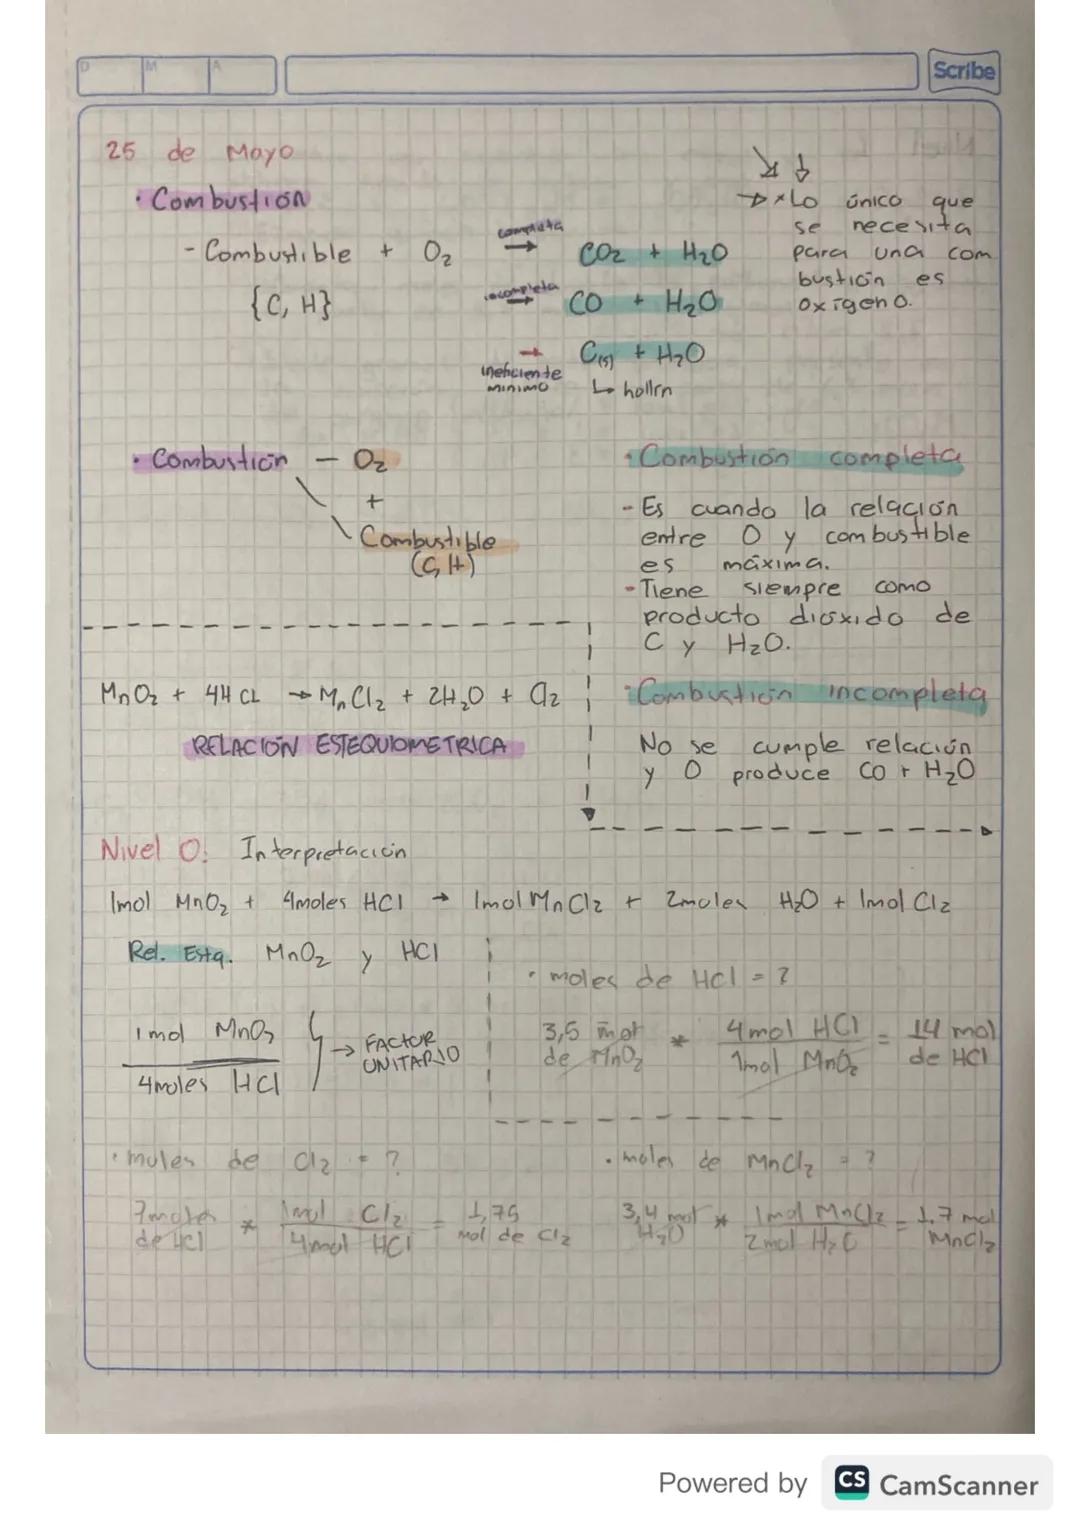 D M A
Scribe
25 de Mayo
· Combustión
- Combustible + O₂ completa → CO₂ + H₂O
{C, H} incompleta → CO + H₂O
→ C(s) + H₂O
ineficiente
minimo
↳ hollín
→ * Lo único que
se necesita
para una com
bustión es
oxígeno.
· Combustión — O₂
+
Combustible
(C, H)
· Combustión completa
- Es cuando la relación
entre O y combustible
es máxima.
- Tiene siempre como
producto dióxido de
C y H₂O.
MnO₂ + 4H CL → MnCl₂ + 2H₂O + Cl₂
RELACIÓN ESTEQUIOMETRICA
· Combustión incompleta
No se cumple relación
y O produce CO + H₂O
Nivel 0: Interpretación
1mol MnO₂ + 4moles HCl → 1mol MnCl₂ + 2moles H₂O + 1mol Cl₂
Rel. Estq. MnO₂ y HCl
1 mol MnO₂
4moles HCl
→ FACTOR
UNITARIO
· moles de HCl = ?
3,5 mol de MnO₂ * 4 mol HCl / 1mol MnO₂ = 14 mol de HCl
· moles de Cl₂ = ?
7moles de HCl * 1mol Cl₂ / 4mol HCl = 1,75 mol de Cl₂
· moles de MnCl₂ = ?
3,4 mol H₂O * 1mol MnCl₂ / 2mol H₂O = 1.7 mol MnCl₂
Powered by CS CamScanner